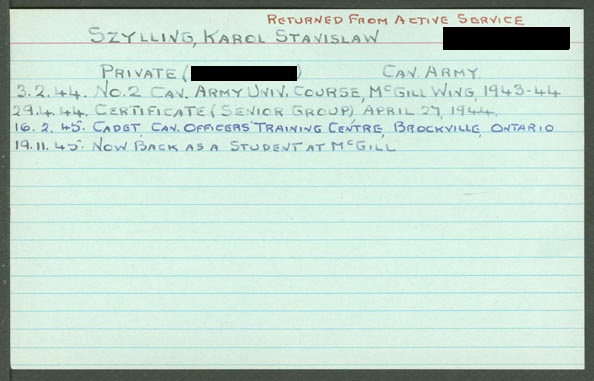 RETURNED FROM ACTIVE SERVICE
SZYLLING, KAROL STANISLAW
PRIVATE ( ) CAN. ARMY.
3.2.44. NO.2 CAN. ARMY UNIV. COURSE, MCGILL WING, 1943-44
29.4.44. CERTIFICATE (SENIOR GROUP) APRIL 27, 1944.
16.2.45. CADET, CAN. OFFICERS' TRAINING CENTRE, BROCKVILLE, ONTARIO
19.11.45. NOW BACK AS A STUDENT AT MCGILL